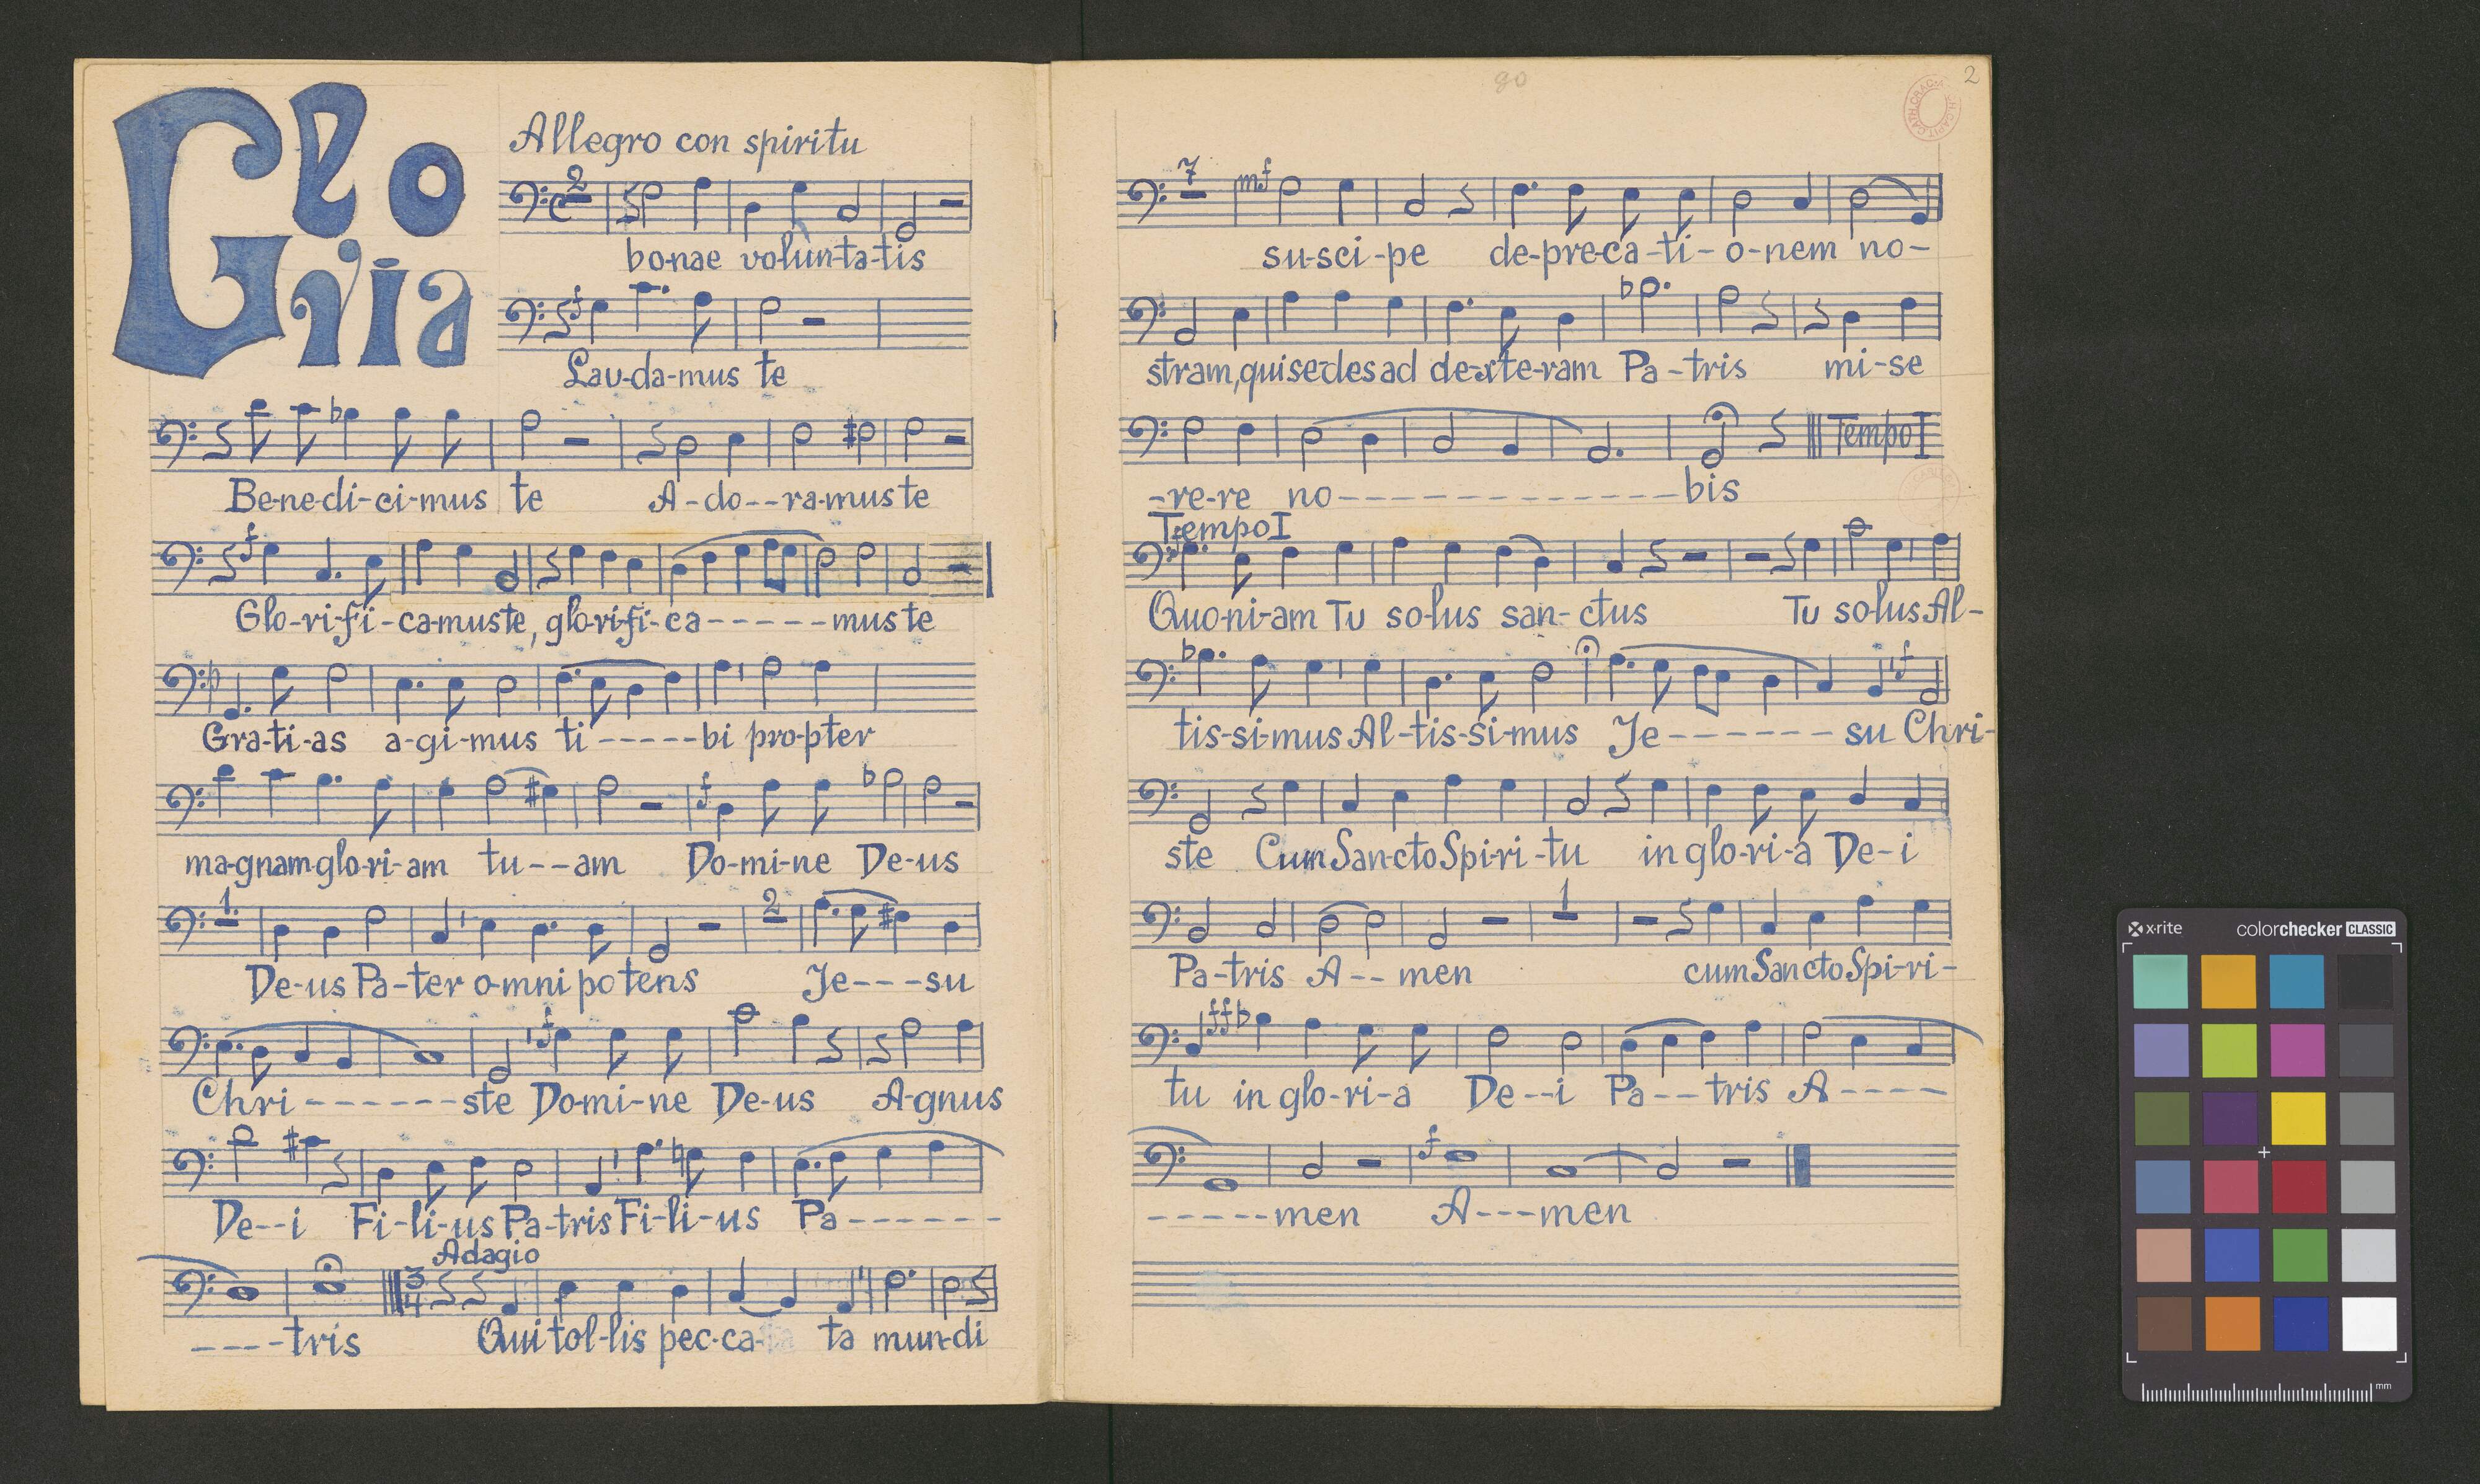 Gloria
Allegro con spiritu
2
bonae volun-ta-tis
Lau-da-mus te
Be-ne-di-ci-mus te A-do--ra-mus te
Glo-ri-fi-ca-mus te, glo-ri-fi-ca-----mus te
Gra-ti-as a-gi-mus ti-----bi pro-pter
ma-gnam glo-ri-am tu--am Do-mi-ne De-us
1. 2
De-us Pa-ter o-mni po tens Je---su
f
Chri------ste Do-mi-ne De-us A-gnus
De--i Fi-li-us Pa-tris Fi-li-us Pa------
Adagio
3/4
----tris Qui tol-lis pec-ca- ta mun-di
90
2
7 mf
su-sci-pe de-pre-ca-ti-o-nem no-
stram, qui sedes ad de-xte-ram Pa-tris mi-se
Tempo I
-re-re no-------------bis
Tempo I
Quo-ni-am Tu so-lus san-ctus Tu so-lus Al-
f
tis-si-mus Al-tis-si-mus Je-------su Chri-
ste Cum San-cto Spi-ri-tu in glo-ri-a De-i
1
Pa-tris A--men cum San cto Spi-ri-
ff
tu in glo-ri-a De--i Pa--tris A----
f
-----men A---men
x-rite colorchecker CLASSIC
mm